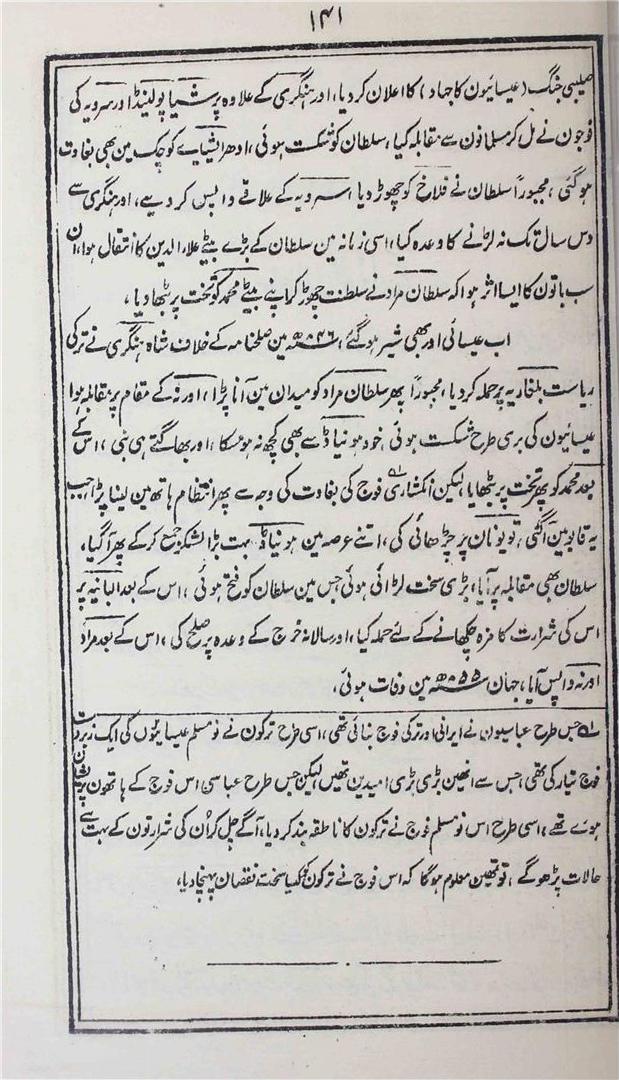 ۱۴۱
صلیبی جنگ (عیسائیون کا جہاد) کا اعلان کردیا، اور ہنگری کے علاوہ پرشیا پولینڈ اور سرویہ کی
فوجون نے مل کر مسلمانون سے مقابلہ کیا، سلطان کو شکست ہوئی، ادھر ایشیاے کوچک مین بھی بغاوت
ہوگئی، مجبوراً سلطان نے فلاخ کو چھوڑ دیا، سرویہ کے علاقے واپس کر دیے، اور ہنگری سے
دس سال تک نہ لڑنے کا وعدہ کیا، اسی زمانہ مین سلطان کے بڑے بیٹے علاء الدین کا انتقال ہوا، ان
سب باتون کا ایسا اثر ہوا کہ سلطان مراد نے سلطنت چھوڑ کر اپنے بیٹے محمد کو تخت پر بٹھا دیا،
اب عیسائی اور بھی شیر ہو گئے، ۸۴۶ھ مین صلحنامہ کے خلاف شاہ ہنگری نے ترکی
ریاست بلغاریہ پر حملہ کردیا، مجبوراً پھر سلطان مراد کو میدان مین آنا پڑا، اورنہ کے مقام پر مقابلہ ہوا
عیسائیون کی بری طرح شکست ہوئی، خود ہونیاڈ سے بھی کچھ نہ ہوسکا، اور بھاگتے ہی بنی، اس کے
بعد محمد کو پھر تخت پر بٹھایا لیکن انکشاری ۱؎ فوج کی بغاوت کی وجہ سے پھر انتظام ہاتھ مین لینا پڑا، جب
یہ قابو مین آگئی، تو یونان پر چڑھائی کی، اتنے عرصہ مین ہونیاڈ بہت بڑا لشکر جمع کرکے پھر آگیا،
سلطان بھی مقابلہ پر آیا، بڑی سخت لڑائی ہوئی جس مین سلطان کو فتح ہوئی، اس کے بعد البانیہ پر
اس کی شرارت کا مزہ چکھانے کے لئے حملہ کیا، اور سالانہ خرج کے وعدہ پر صلح کی، اس کے بعد مراد
اورنہ واپس آیا، جہان ۸۵۵ھ مین وفات ہوئی،
۱؎ جس طرح عباسیون نے ایرانی اور ترکی فوج بنائی تھی، اسی طرح ترکون نے نو مسلم عیسائیون کی ایک زبردست
فوج تیار کی تھی، جس سے انھین بڑی بڑی امیدین تھین، لیکن جس طرح عباسی اس فوج کے ہاتھون پریشان
ہوے تھے، اسی طرح اس نو مسلم فوج نے ترکون کا ناطقہ بند کر دیا، آگے چل کر اُن کی شرارتون کے بہت سے
حالات پڑھوگے، تو تمھین معلوم ہوگا کہ اس فوج نے ترکون کو کیسا سخت نقصان پہنچا دیا،